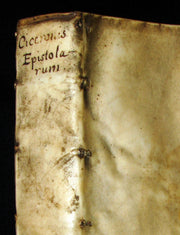 Ciceronis
Epistola-
rum